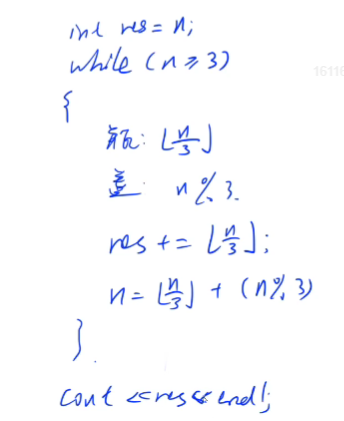 int res = n;
while (n ≥ 3)
16116
{
瓶: ⌊n/3⌋
盖: n % 3.
res += ⌊n/3⌋;
n = ⌊n/3⌋ + (n % 3)
}.
cout <<res<< endl;